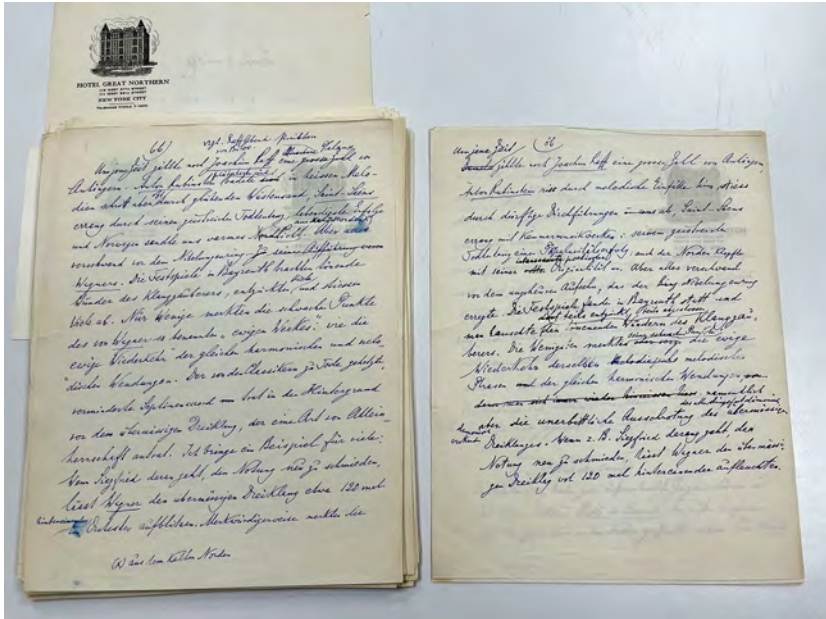 HOTEL GREAT NORTHERN
NEW YORK CITY
66)
Um jene Zeit zählte noch Joachim Raff eine grosse Zahl von
Anhängern. Anton Rubinstein in heissen Melo-
dien aber durch glühenden Wüstensand, Saint-Saens
errang durch seinen geistreiche Todtentanz
und Norwegen sandte uns warmes Nordlicht. Aber alles
verschwand vor dem Nibelungenring
Wagners. Die Festspiele in Bayreuth brachten tönende
Wunder des Klangzauberers, entzückten viele und stiessen
Viele ab. Nur Wenige merkten die schwachen Punkte
des von Wagner so benannten "ewigen Werkes": wie die
ewige Wiederkehr der gleichen harmonischen und melo-
dischen Wendungen. Der von den Classikern zu Tode gehetzte
verminderte Septimenaccord trat in den Hintergrund
vor dem übermässigen Dreiklang, der eine Art von Allein-
herrschaft antrat. Ich bringe ein Beispiel für viele:
Wenn Siegfried daran geht, den Notung neu zu schmieden,
lässt Wagner den übermässigen Dreiklang etwa 120 mal
hintereinander Orchester aufblitzen. Merkwürdigerweise merkten die
(x) aus dem kalten Norden
Um jene Zeit 66
zählte noch Joachim Raff eine grosse Zahl von Anhängern,
Anton Rubinstein riss durch melodische Einfälle hin, stiess
durch dürftige Durchführungen immer ab, Saint-Saens
errang mit Kennermeisterwerke: seinem geistreiche
Todtentanz einen und der Norden klopfte
mit seiner Originalität an. Aber alles verschwand
vor dem ungeheuren Aufsehn, das der Ring des Nibelungen
erregte. Die Festspiele fanden in Bayreuth statt und
teils entzückt, teils abgestossen
man lauschte den tönenden Wundern des Klangzau-
berers. Die Wenigsten merkten die ewige
Wiederkehr derselben melodischer
Phrasen und der gleichen harmonischen Wendungen
namentlich
aber die unerbittliche Ausschrotung des übermässigen
Dreiklanges. Wenn z. B. Siegfried daran geht, den
Notung neu zu schmieden, lässt Wagner den übermässi-
gen Dreiklang wol 120 mal hintereinander aufleuchten.